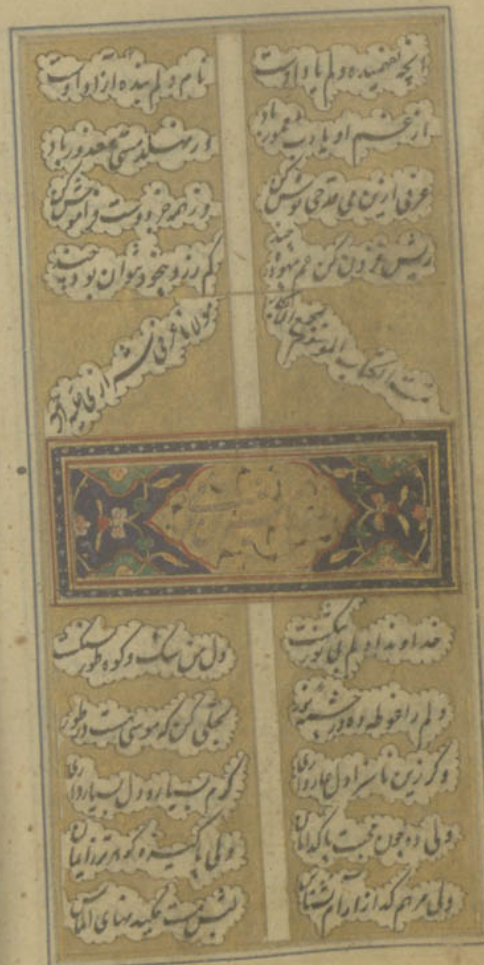 انچه نفهمیده دلم یاد اوست نام دلم بنده آزاد اوست
از غم او یارب معمور باد ور نهلد مستی معذور باد
عرفی ازین می قدحی نوش کن وز همه جز دوست فراموش کن
ریش فزون کن غم بهبود چند کم توان بود چند
تمت الکتاب الموسوم بمجمع الابکار مولانا عرفی شیرازی علیه
خداوندا دلم بی نور تنگست دل من سنگ و کوه طور سنگست
دلم را غوطه ده در چشمه نور تجلی کن که موسی هست در طور
وگر زین ناسزا دل عار داری کرم بسیار و دل بسیار داری
دلی ده چون محبت پاکدامان ولی پاکیزه گوهرتر ز ایمان
دلی مرهم گداز آرام نشناس لبش مست مکیدنهای الماس